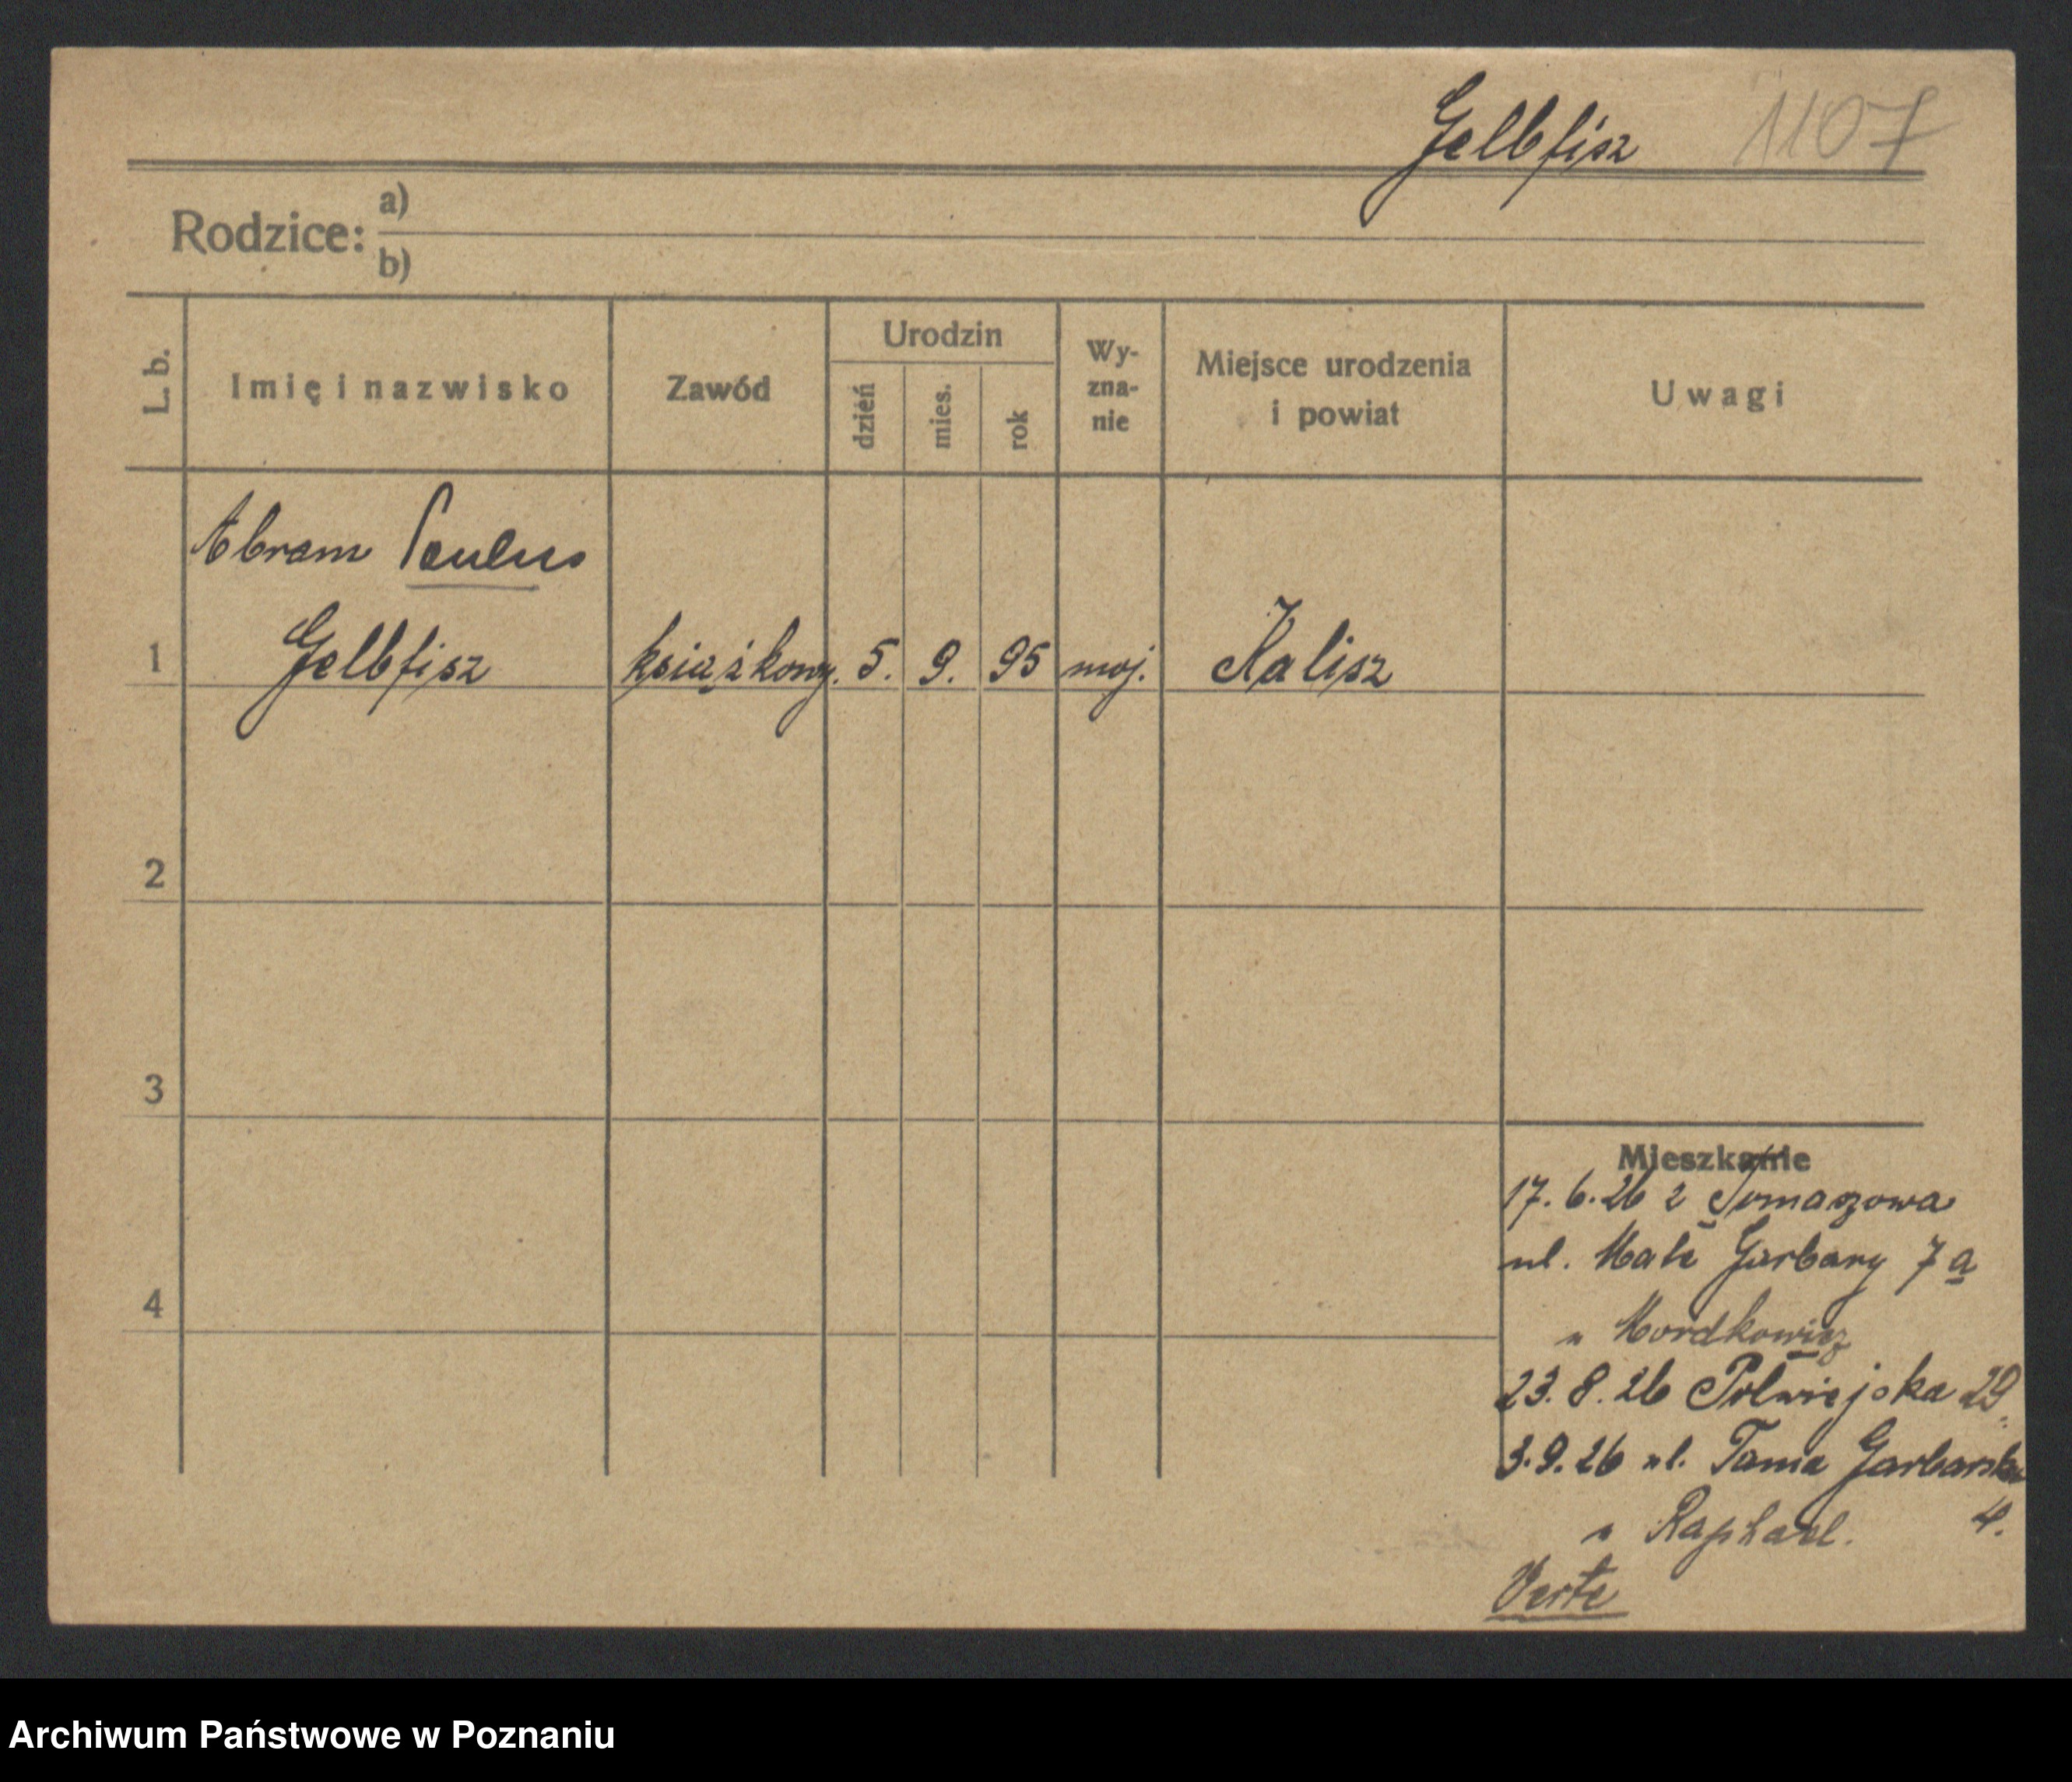 Gelbfisz 1107
Rodzice: a)
b)
L. b.
Imię i nazwisko
Zawód
Urodzin
dzień
mies.
rok
Wy-
zna-
nie
Miejsce urodzenia
i powiat
Uwagi
Abram Paulus
1 Gelbfisz książkowy. 5. 9. 95 moj. Kalisz
2
3
4
Mieszkanie
17. 6. 26 z Tomaszowa
ul. Małe Garbary 7 a
" Mordkowicz
23. 8. 26 Półwiejska 29.
3. 9. 26 ul. Tama Garbarska
" Raphael. 4.
Verte
Archiwum Państwowe w Poznaniu